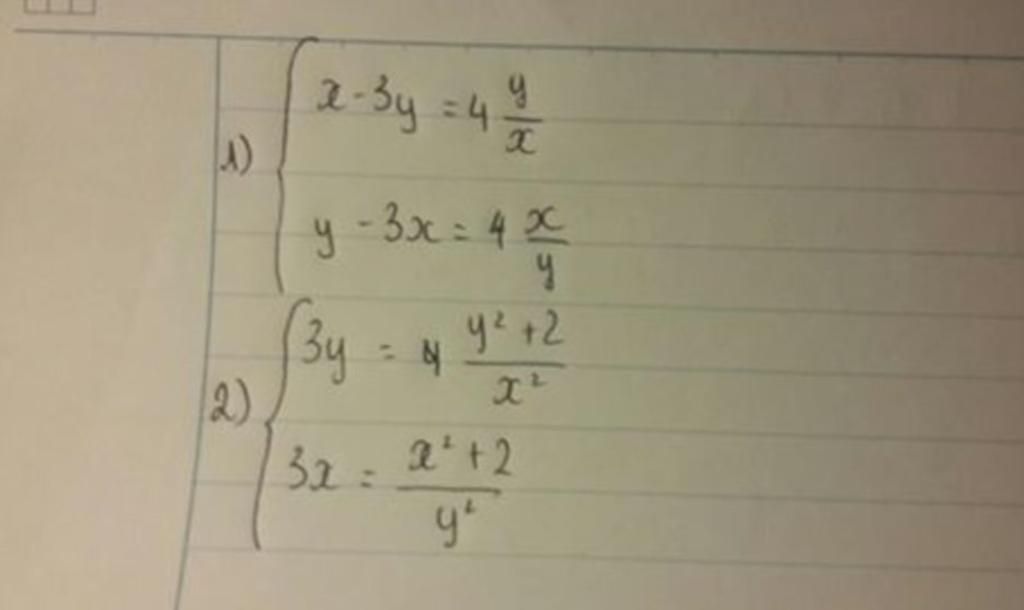 1) { x - 3y = 4 y/x
y - 3x = 4 x/y
2) { 3y = (y² + 2)/x²
3x = (x² + 2)/y²